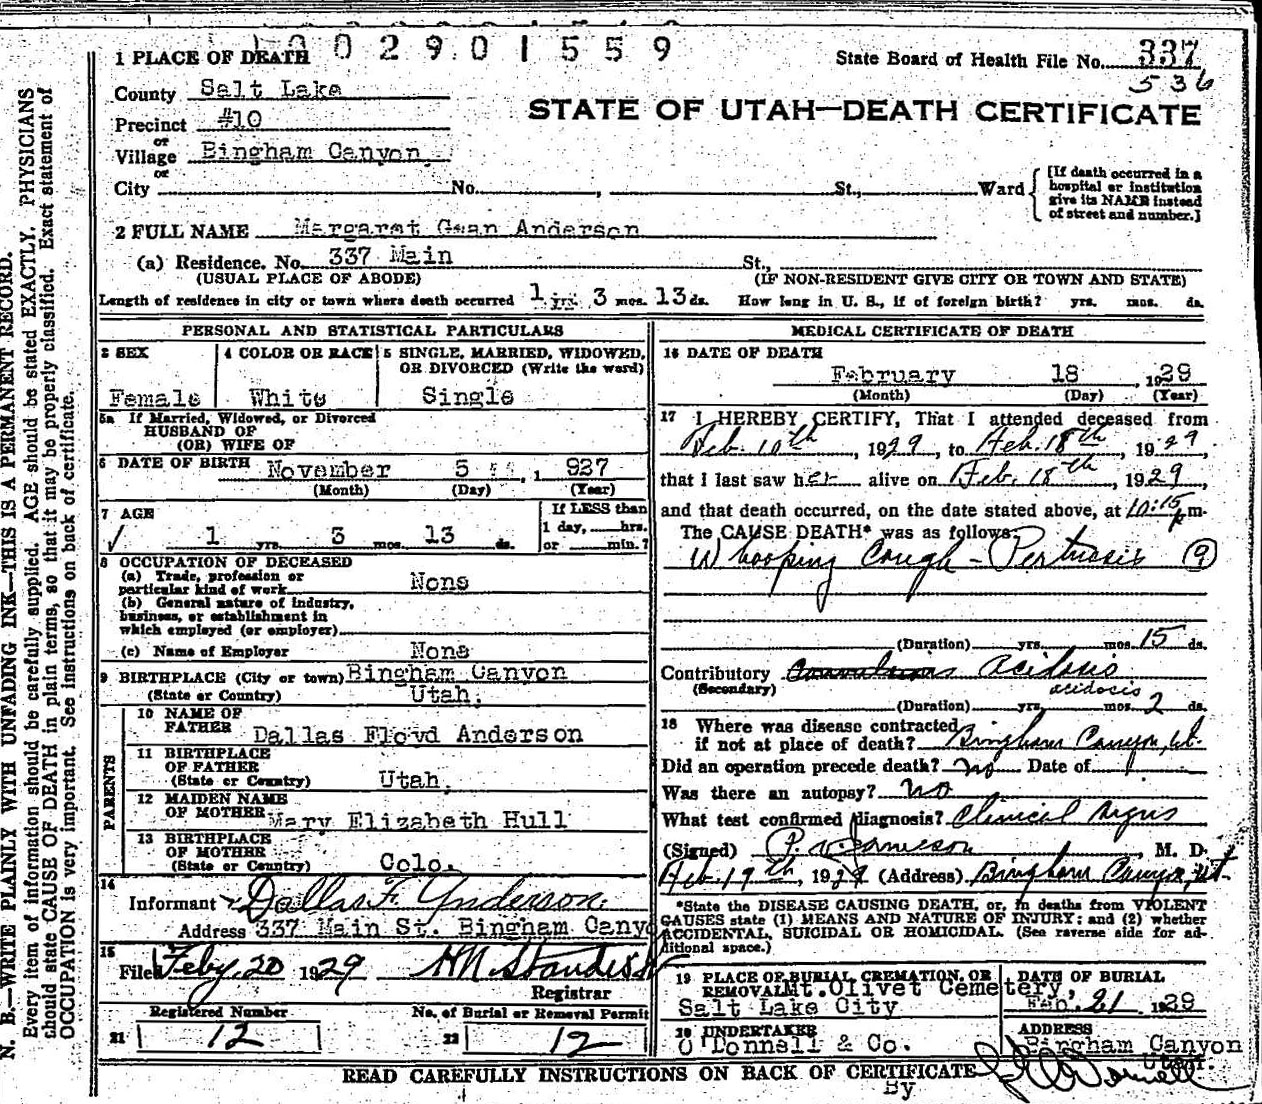 1 0 0 2 9 0 1 5 5 9
1 PLACE OF DEATH
State Board of Health File No. 337
536
County Salt Lake
STATE OF UTAH—DEATH CERTIFICATE
Precinct #10
or
Village Bingham Canyon
or
City No. , St., Ward
[If death occurred in a
hospital or institution
give its NAME instead
of street and number.]
2 FULL NAME Margaret Gwan Anderson
(a) Residence. No. 337 Main St.,
(USUAL PLACE OF ABODE) (IF NON-RESIDENT GIVE CITY OR TOWN AND STATE)
Length of residence in city or town where death occurred 1 yrs. 3 mos. 13 ds. How long in U. S., if of foreign birth? yrs. mos. ds.
PERSONAL AND STATISTICAL PARTICULARS
3 SEX
Female
4 COLOR OR RACE
White
5 SINGLE, MARRIED, WIDOWED,
OR DIVORCED (Write the word)
Single
5a If Married, Widowed, or Divorced
HUSBAND OF
(OR) WIFE OF
6 DATE OF BIRTH November 5 , 1 927
(Month) (Day) (Year)
7 AGE
1 yrs. 3 mos. 13 ds.
If LESS than
1 day, hrs.
or min.?
8 OCCUPATION OF DECEASED
(a) Trade, profession or
particular kind of work None
(b) General nature of industry,
business, or establishment in
which employed (or employer)
(c) Name of Employer None
9 BIRTHPLACE (City or town) Bingham Canyon
(State or Country) Utah.
PARENTS
10 NAME OF
FATHER Dallas Floyd Anderson
11 BIRTHPLACE
OF FATHER
(State or Country) Utah.
12 MAIDEN NAME
OF MOTHER Mary Elizabeth Hull
13 BIRTHPLACE
OF MOTHER
(State or Country) Colo.
14
Informant Dallas F. Anderson
Address 337 Main St. Bingham Canyo
15
Filed Feby. 20 1929 H N Standish
Registrar
Registered Number
21 12
No. of Burial or Removal Permit
22 12
MEDICAL CERTIFICATE OF DEATH
16 DATE OF DEATH
February 18 , 1929
(Month) (Day) (Year)
17 I HEREBY CERTIFY, That I attended deceased from
Feb. 10th, 1929, to Feb. 18th 1929,
that I last saw her alive on Feb. 18th, 1929,
and that death occurred, on the date stated above, at 10:15 pm.
The CAUSE DEATH* was as follows:
Whooping Cough - Pertussis 9
(Duration) yrs. mos. 15 ds.
Contributory Convulsions acidosis
(Secondary) acidosis
(Duration) yrs. mos. 2 ds.
18 Where was disease contracted
if not at place of death? Bingham Canyon, Ut.
Did an operation precede death? no Date of
Was there an autopsy? no
What test confirmed diagnosis? Clinical signs
(Signed) Jameson, M. D.
Feb. 19th, 1929 (Address) Bingham Canyon, Ut.
*State the DISEASE CAUSING DEATH, or, in deaths from VIOLENT
CAUSES state (1) MEANS AND NATURE OF INJURY; and (2) whether
ACCIDENTAL, SUICIDAL OR HOMICIDAL. (See reverse side for ad-
ditional space.)
19 PLACE OF BURIAL, CREMATION, OR
REMOVAL Mt. Olivet Cemetery,
Salt Lake City
DATE OF BURIAL
Feb. 21 1929
20 UNDERTAKER
O'Donnell & Co.
ADDRESS
Bingham Canyon
Utah.
READ CAREFULLY INSTRUCTIONS ON BACK OF CERTIFICATE
By
N. B.—WRITE PLAINLY WITH UNFADING INK—THIS IS A PERMANENT RECORD.
Every item of information should be carefully supplied. AGE should be stated EXACTLY. PHYSICIANS
should state CAUSE OF DEATH in plain terms, so that it may be properly classified. Exact statement of
OCCUPATION is very important. See instructions on back of certificate.